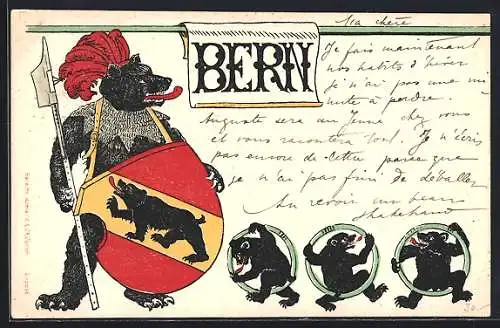 BERN
Ma chère
Je fais maintenant
nos habits d'hiver
je n'ai pas une mi
nute à perdre.
Auguste sera au Jeune chez vous
et vous racontera tout. Je n'écris
pas encore de cette parce que
je n'ai pas fini de déballer
Au revoir un
shakehand